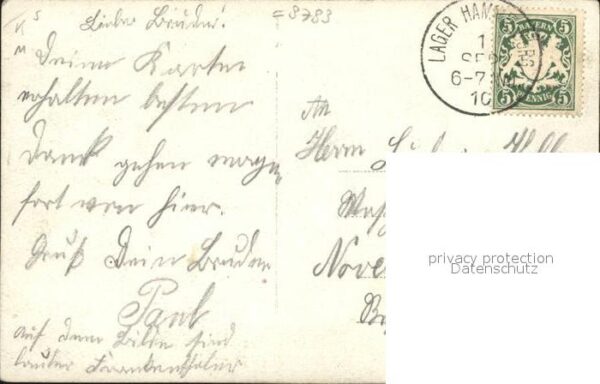 = 8783
K S
Lieber Bruder!
Deine Karte
erhalten besten
Dank gehen morgen
fort von hier.
Gruß Dein Bruder
Paul
auf dem Bilde sind
lauter Frankenthaler
LAGER HAM
1
SEP
6-7
10
BAYERN
5 5
PFENNIG
5 5
An
Herrn
Nove
privacy protection
Datenschutz